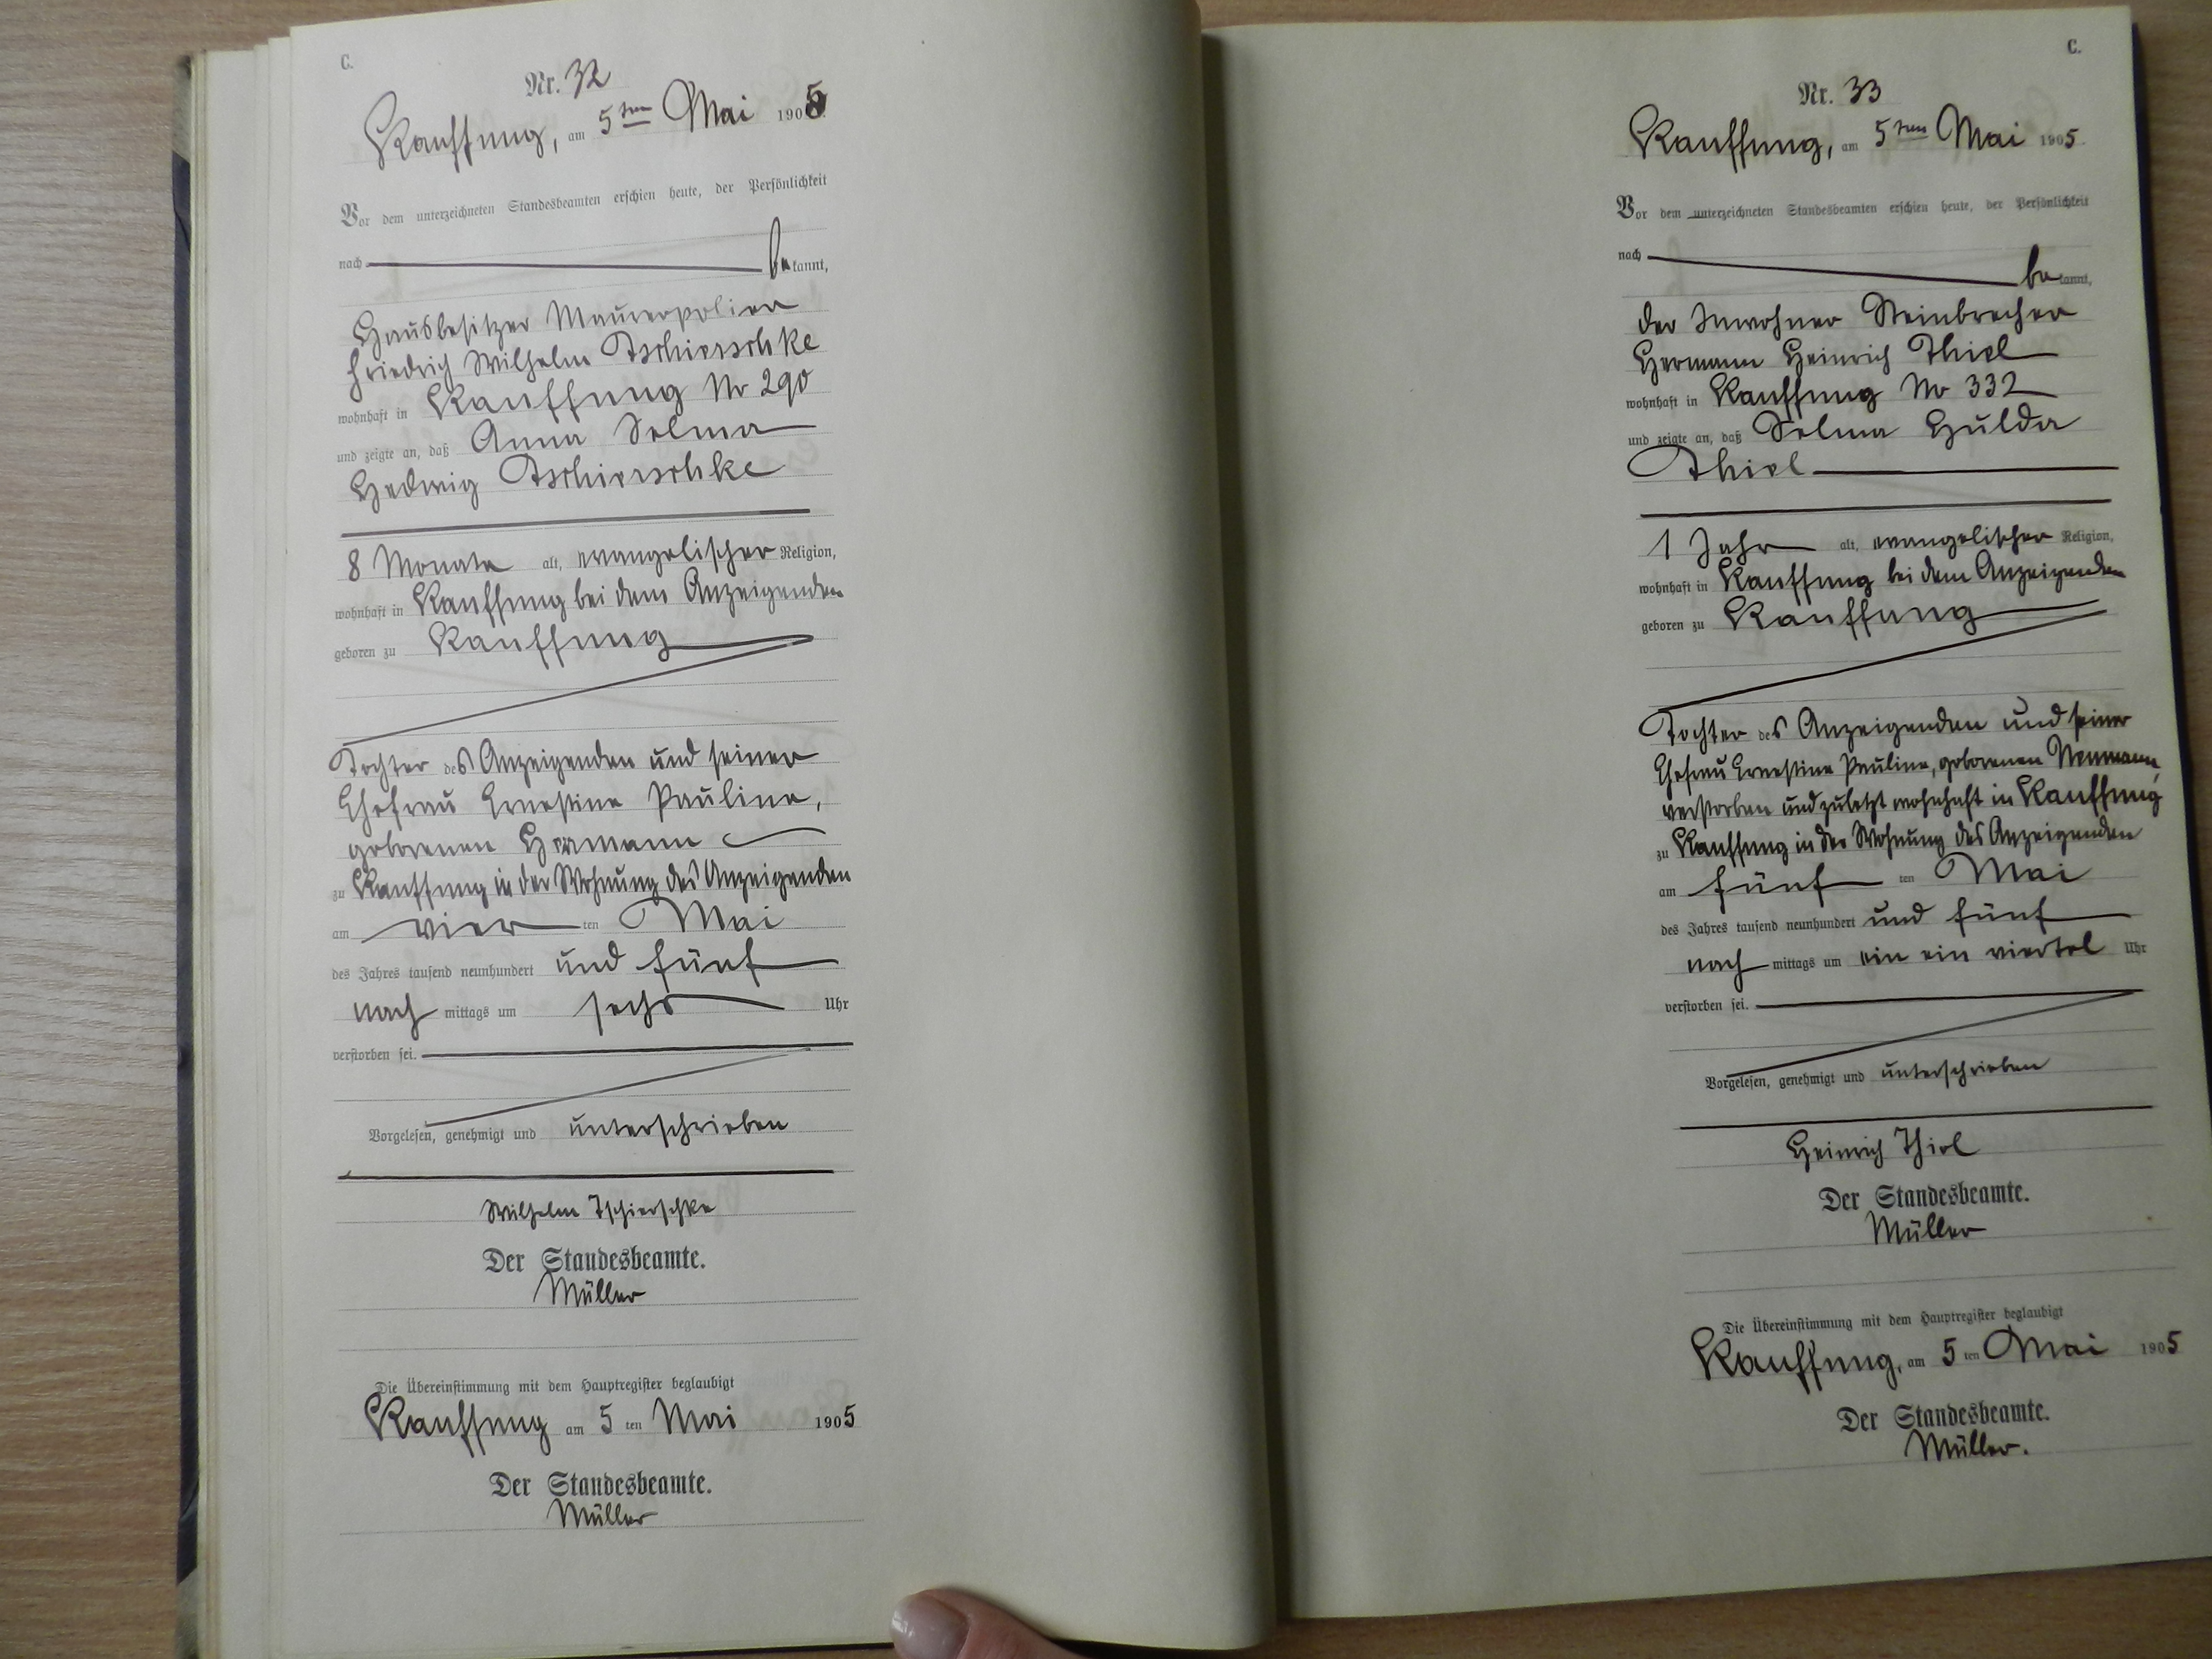 C.
Nr. 32
Kauffung, am 5ten Mai 1905
Vor dem unterzeichneten Standesbeamten erschien heute, der Persönlichkeit
nach bekannt,
Hausbesitzer Maurerpolier
Friedrich Wilhelm Tschierschke
wohnhaft in Kauffung No 290
und zeigte an, daß Anna Selma
Hedwig Tschierschke
8 Monate alt, evangelischer Religion,
wohnhaft in Kauffung bei dem Anzeigenden
geboren zu Kauffung
Tochter des Anzeigenden und seiner
Ehefrau Ernestine Pauline,
geborenen Hermann
zu Kauffung in der Wohnung des Anzeigenden
am vierten Mai
des Jahres tausend neunhundert und fünf
nachmittags um sechs Uhr
verstorben sei.
Vorgelesen, genehmigt und unterschrieben
Wilhelm Tschierschke
Der Standesbeamte.
Müller
Die Übereinstimmung mit dem Hauptregister beglaubigt
Kauffung am 5ten Mai 1905
Der Standesbeamte.
Müller
C.
Nr. 33
Kauffung, am 5ten Mai 1905
Vor dem unterzeichneten Standesbeamten erschien heute, der Persönlichkeit
nach bekannt,
der Inwohner Steinbrecher
Hermann Heinrich Thiel
wohnhaft in Kauffung No 332
und zeigte an, daß Selma Hulda
Thiel
1 Jahr alt, evangelischer Religion,
wohnhaft in Kauffung bei dem Anzeigenden
geboren zu Kauffung
Tochter des Anzeigenden und seiner
Ehefrau Ernestine Pauline, geborenen Neumann,
verstorben und zuletzt wohnhaft in Kauffung
zu Kauffung in der Wohnung des Anzeigenden
am fünften Mai
des Jahres tausend neunhundert und fünf
nachmittags um ein ein viertel Uhr
verstorben sei.
Vorgelesen, genehmigt und unterschrieben
Heinrich Thiel
Der Standesbeamte.
Müller
Die Übereinstimmung mit dem Hauptregister beglaubigt
Kauffung, am 5ten Mai 1905
Der Standesbeamte.
Müller.